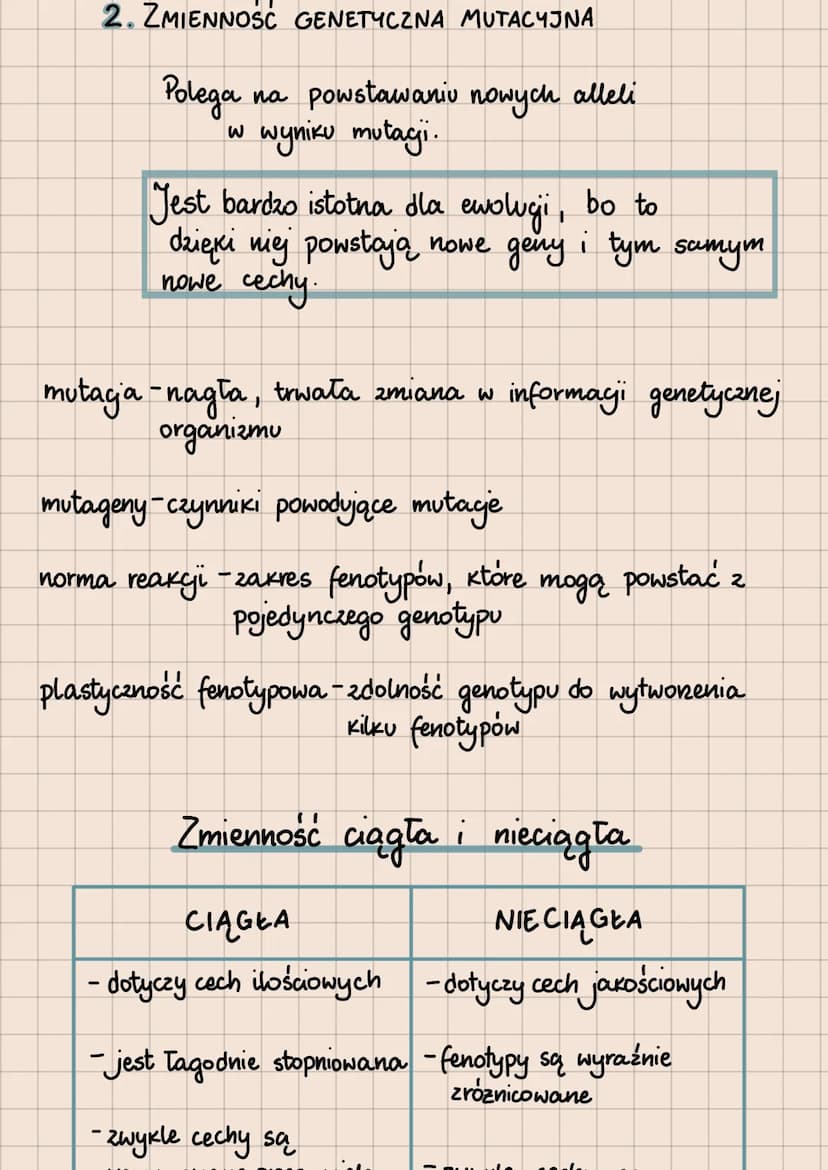 2. ZMIENNOŚĆ GENETYCZNA MUTACYJNA
Polega na powstawaniu nowych alleli
w wyniku mutacji.
Jest bardzo istotna dla ewolucji, bo to
dzięki niej powstają nowe geny i tym samym
nowe cechy.
mutacja - nagła, trwała zmiana w informacji genetycznej
organizmu
mutageny - czynniki powodujące mutacje
norma reakcji - zakres fenotypów, które mogą powstać z
pojedynczego genotypu
plastyczność fenotypowa - zdolność genotypu do wytworzenia
kilku fenotypów
Zmienność ciągła i nieciągła
CIĄGŁA
- dotyczy cech ilościowych
- jest łagodnie stopniowana
- zwykle cechy są
NIECIĄGŁA
- dotyczy cech jakościowych
- fenotypy są wyraźnie
zróżnicowane